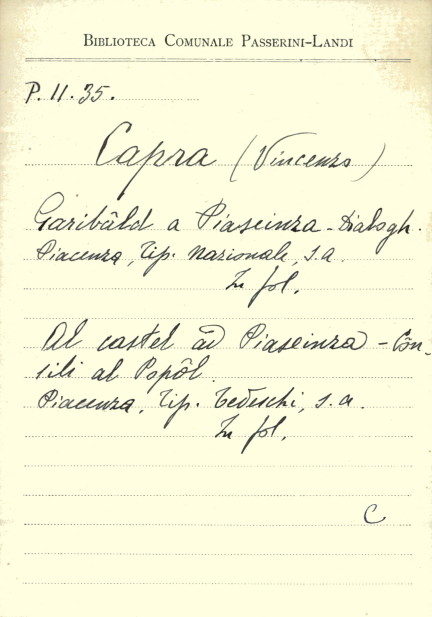 BIBLIOTECA COMUNALE PASSERINI-LANDI
P. 11. 35.
Capra (Vincenzo)
Garibâld a Piaseinza - Dialogh.
Piacenza, Tip. Nazionale, s.a.
In fol.
Al castel âd Piaseinza - Côn-
sili al Popôl.
Piacenza, Tip. Tedeschi, s. a.
In fol.
C